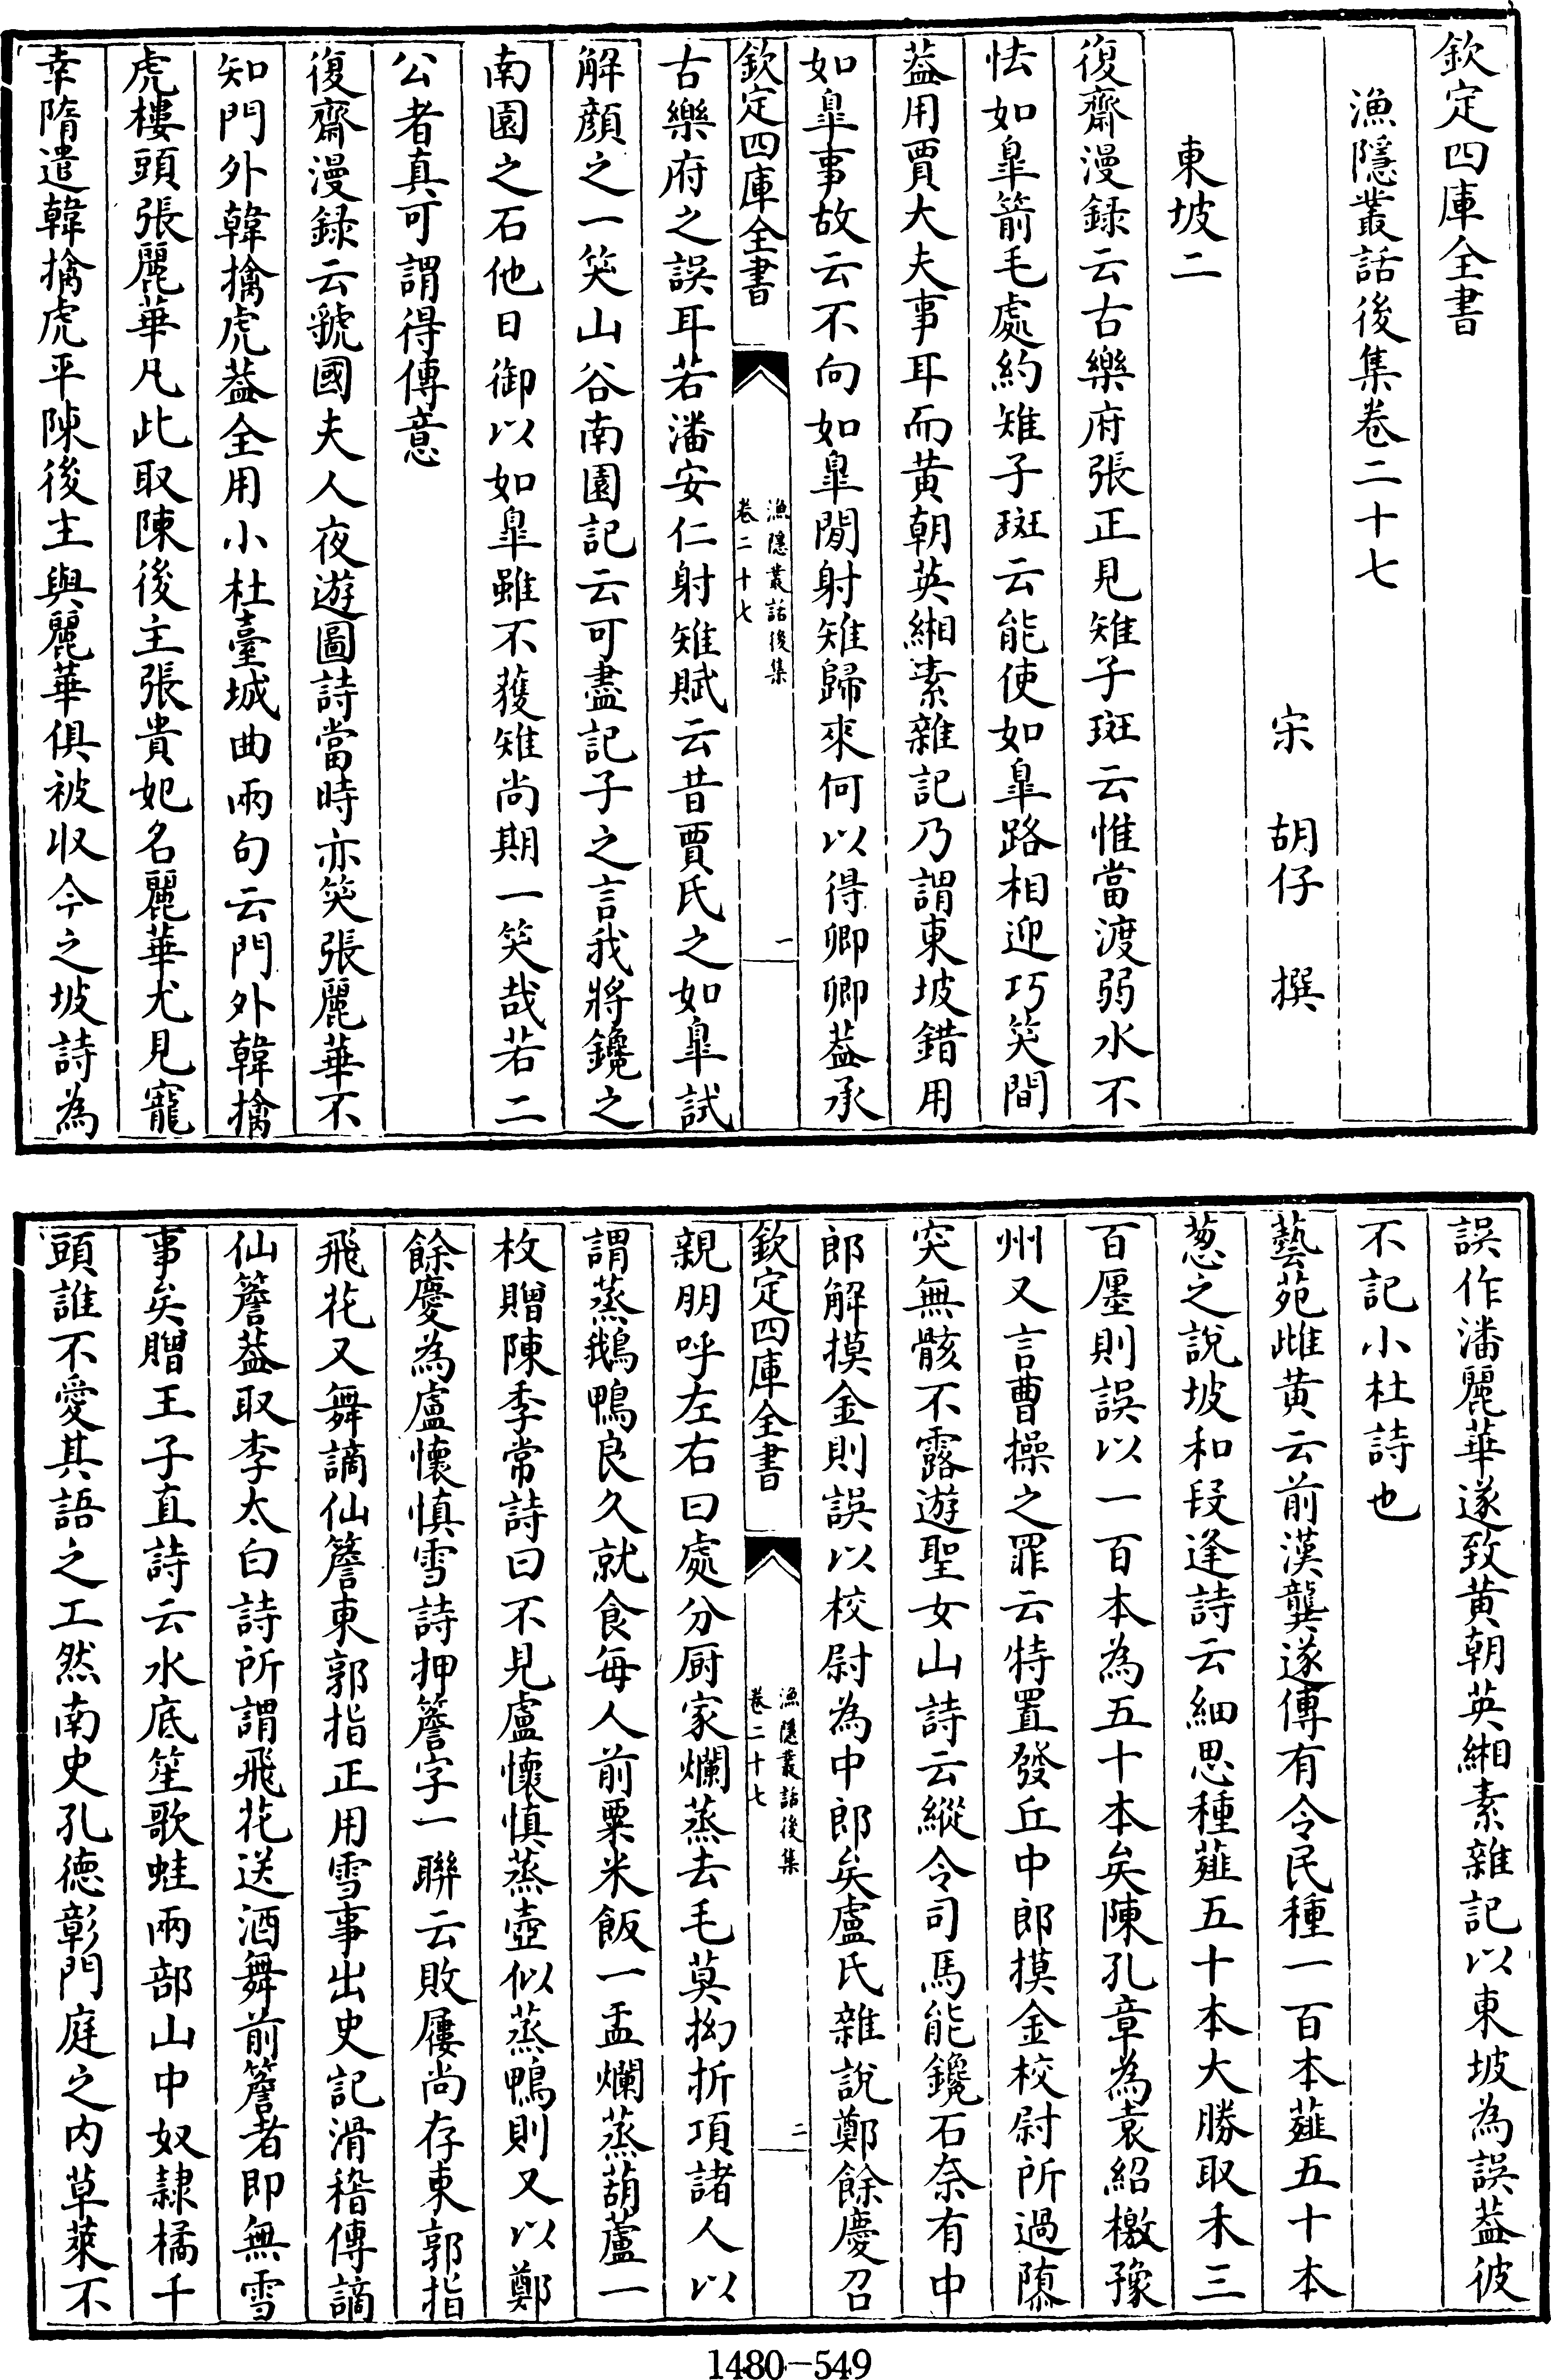 欽定四庫全書
漁隱叢話後集卷二十七
宋 胡仔 撰
東坡二
復齋漫録云古樂府張正見雉子斑云惟當渡弱水不
怯如臯箭毛處約雉子斑云能使如臯路相迎巧笑間
葢用賈大夫事耳而黄朝英緗素雜記乃謂東坡錯用
如臯事故云不向如臯閒射雉歸來何以得卿卿葢承
欽定四庫全書
漁隱叢話後集
卷二十七
一
古樂府之誤耳若潘安仁射雉賦云昔賈氏之如臯試
解顔之一笑山谷南園記云可盡記子之言我將鑱之
南園之石他日御以如臯雖不獲雉尚期一笑哉若二
公者真可謂得傳意
復齋漫録云虢國夫人夜遊圖詩當時亦笑張麗華不
知門外韓擒虎葢全用小杜臺城曲兩句云門外韓擒
虎樓頭張麗華凡此取陳後主張貴妃名麗華尤見寵
幸隋遣韓擒虎平陳後主與麗華俱被收今之坡詩為
誤作潘麗華遂致黄朝英緗素雜記以東坡為誤葢彼
不記小杜詩也
藝苑雌黄云前漢龔遂傳有令民種一百本薤五十本
葱之說坡和段逢詩云細思種薤五十本大勝取禾三
百廛則誤以一百本為五十本矣陳孔章為袁紹檄豫
州又言曹操之罪云特置發丘中郎摸金校尉所過隳
突無骸不露遊聖女山詩云縱令司馬能鑱石奈有中
郎解摸金則誤以校尉為中郎矣盧氏雜說鄭餘慶召
欽定四庫全書
漁隱叢話後集
卷二十七
二
親朋呼左右曰處分厨家爛蒸去毛莫拗折項諸人以
謂蒸鵝鴨良久就食每人前粟米飯一盂爛蒸葫蘆一
枚贈陳季常詩曰不見盧懷慎蒸壺似蒸鴨則又以鄭
餘慶為盧懷慎雪詩押簷字一聯云敗屨尚存東郭指
飛花又舞謫仙簷東郭指正用雪事出史記滑稽傳謫
仙簷葢取李太白詩所謂飛花送酒舞前簷者即無雪
事矣贈王子直詩云水底笙歌蛙兩部山中奴隷橘千
頭誰不愛其語之工然南史孔徳彰門庭之内草萊不
1480—549